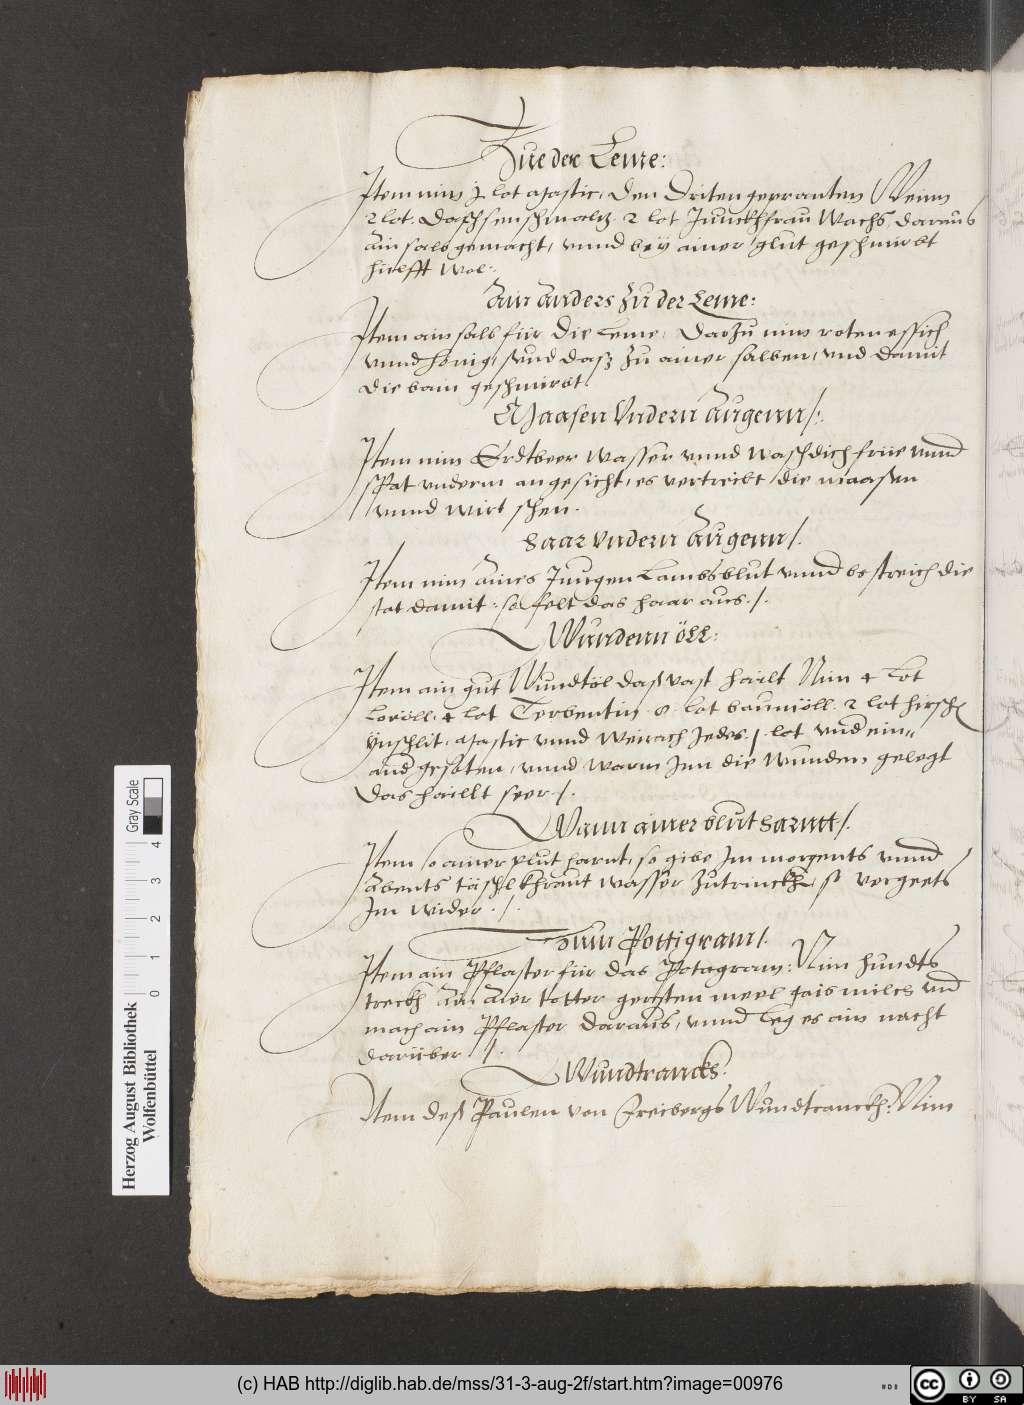 Zue der Leme:
Item nim j lot Mastic, den Driten geprannten Wein
2 lot. Dachsenschmaltz 2 lot Junckhfrau Wachs, daraus
ain salb gemacht, vnnd beÿ ainer glut geschmirbt
hielfft wol:
Ain Anders Zu der Leme:
Item ain salb für die Leme, Darzu nim roten essich
vnnd honig, seud dass zu ainer salben, vnd damit
die bain geschmirbt.
Maasen Vndern Augenn /:
Item nim Erdtbeer wasser vnnd wasch dich früe vnnd
spat vnderm angesicht, es vertreibt die maasen
vnnd wirt schen.
Haar Vndern Augenn /.
Item nim Aines Jungen Lambsblut vnnd bestreich die
stat damit: so felt das haar aus ./.
Wunden öll:
Item ain gut Wundtöl das vast hailt Nim 4 Lot
Loröll. 4 lot Terbentin 8 lot baumöll. 2 lot hirsch
Ynschlit, Mastic vnnd Weirach Jedes . j . lot vnd ein„
and gesoten, vnnd warm Jnn die Wunden gelegt
das haillt seer ./.
Wann ainer blut Harntt /.
Item so ainer plut harnt, so gibe Im morgents vnnd
Abents täschlkhraut wasser zutrinckh, so vergeets
Im wider . /.
Zum Pottigram /.
Item ain Pflaster für das Potagram: Nim hundts
treckh Ain Aier totter gersten meel gais milch vnd
mach ain Pflaster daraus, vnnd leg es ain nacht
darüber /.
Wundtrancks:
Item dess Paulen von Freibergs Wundtranckh: Nim
Herzog August Bibliothek
Wolfenbüttel
0 1 2 3 4
Gray Scale
(c) HAB http://diglib.hab.de/mss/31-3-aug-2f/start.htm?image=00976
cc BY SA